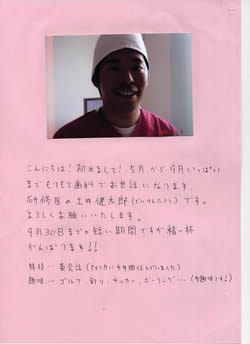 こんにちは！初めまして！5月から9月いっぱい
までもりもと歯科でお世話になります。
研修医の土井健太郎（どいけんたろう）です。
よろしくお願いいたします。
9月30日までの短い期間ですが精一杯
がんばります!!
特技… 英会話（アメリカに4年間住んでいました）
趣味… ゴルフ、釣り、サッカー、ボーリング…（多趣味です！）